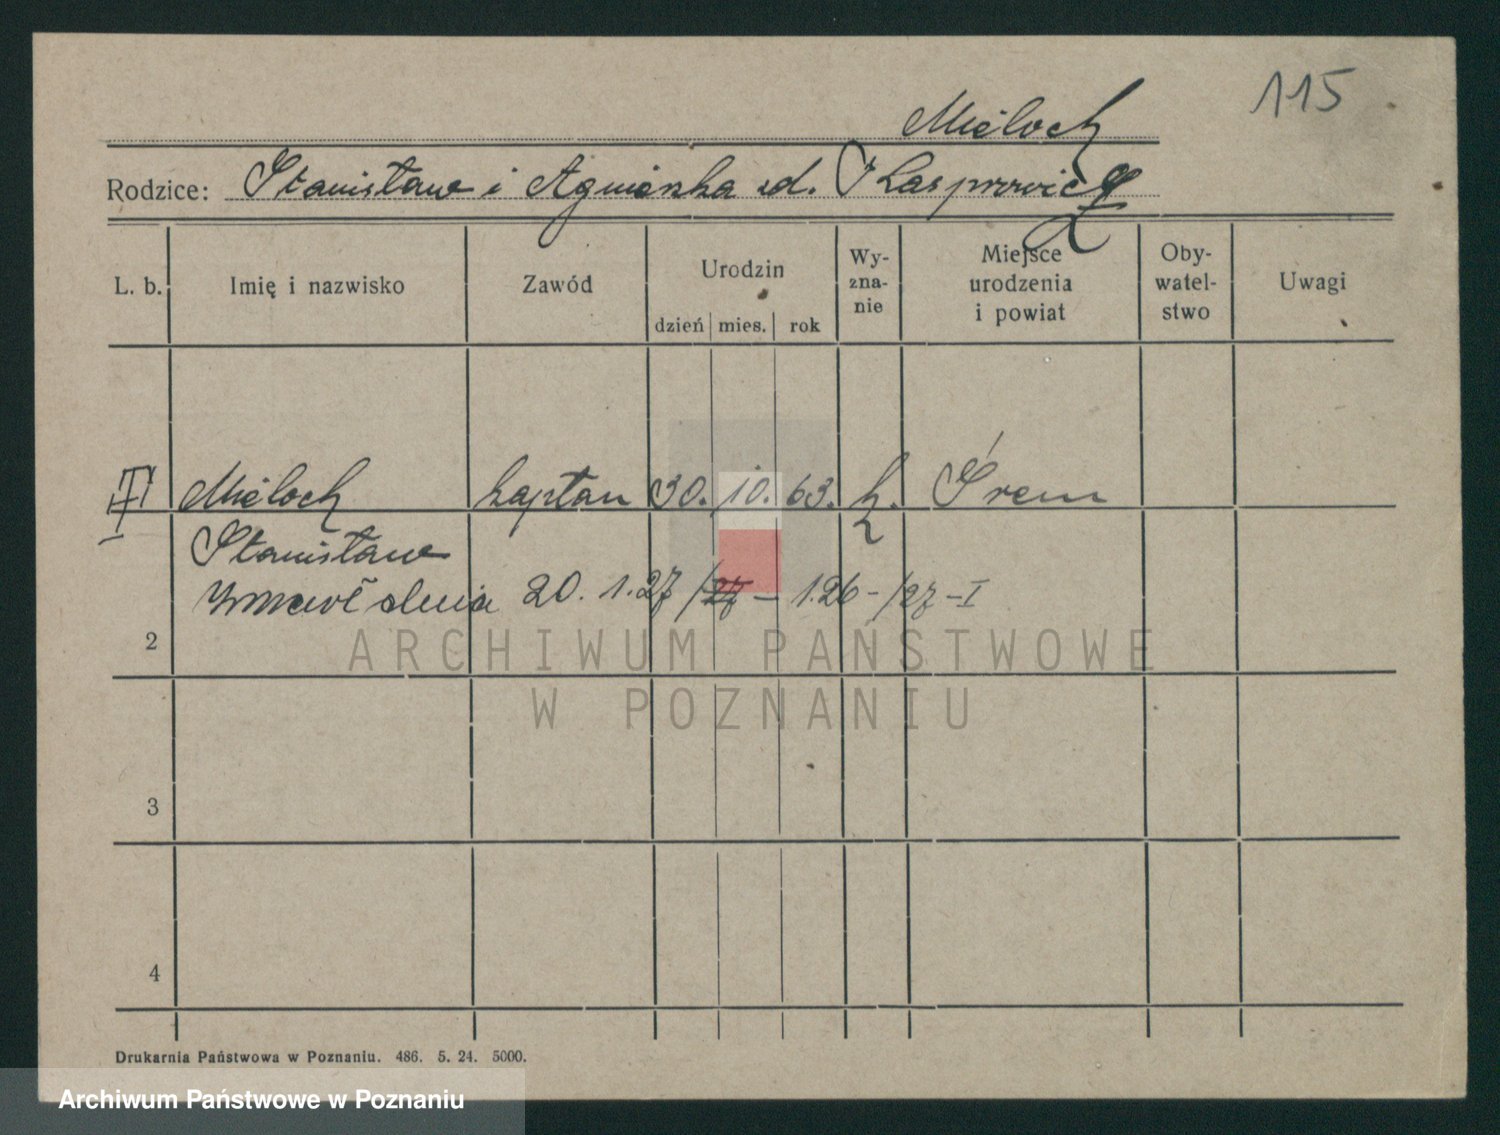 115
Mieloch
Rodzice: Stanisław i Agnieszka zd. Kasprowicz
L. b. Imię i nazwisko Zawód Urodzin dzień mies. rok Wy-zna-nie Miejsce urodzenia i powiat Oby-watel-stwo Uwagi
Mieloch kapłan 30. 10. 63. k. Śrem
Stanisław
zmarł dnia 20. 1. 27 /27 – 1.26 – /27 – I
2
ARCHIWUM PAŃSTWOWE
W POZNANIU
3
4
Drukarnia Państwowa w Poznaniu. 486. 5. 24. 5000.
Archiwum Państwowe w Poznaniu